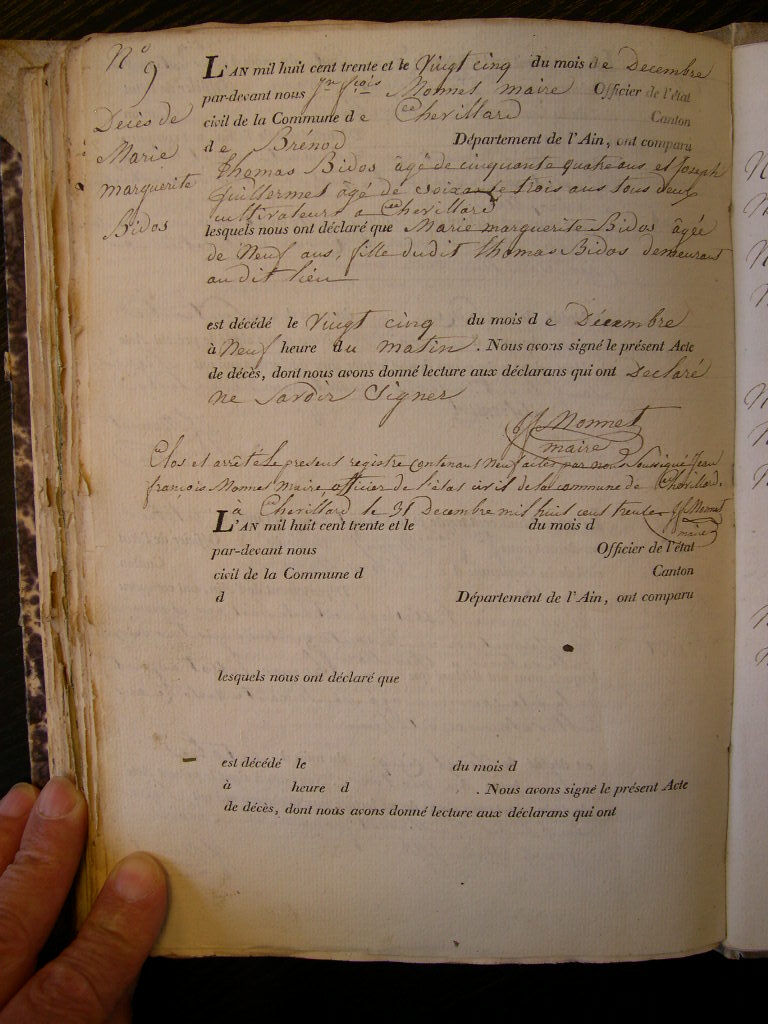 N° 9
Décès de
Marie
marguerite
Bidos
L'AN mil huit cent trente et le Vingt cinq du mois de Decembre
par-devant nous Jn fçois Monnet maire Officier de l'état
civil de la Commune de Chevillard Canton
de Brénod Département de l'Ain, ont comparu
Thomas Bidos âgé de cinquante quatre ans et Joseph
Guillermet âgé de soixante trois ans tous deux
cultivateurs a Chevillard
lesquels nous ont déclaré que Marie marguerite Bidos âgée
de Neuf ans, fille dudit Thomas Bidos demeurant
audit lieu
est décédé le Vingt cinq du mois de Decembre
à Neuf heure du matin. Nous avons signé le présent Acte
de décès, dont nous avons donné lecture aux déclarans qui ont Declaré
ne Savoir Signer
Jf Monnet
maire
Clos et arrêté le present registre contenant Neuf actes par nous Soussigné Jean
françois Monnet Maire officier de l'état civil de la commune de Chevillard.
à Chevillard le 31 Decembre mil huit cent trente Jf Monnet
maire
L'AN mil huit cent trente et le du mois d
par-devant nous Officier de l'état
civil de la Commune d Canton
d Département de l'Ain, ont comparu
lesquels nous ont déclaré que
est décédé le du mois d
à heure d . Nous avons signé le présent Acte
de décès, dont nous avons donné lecture aux déclarans qui ont